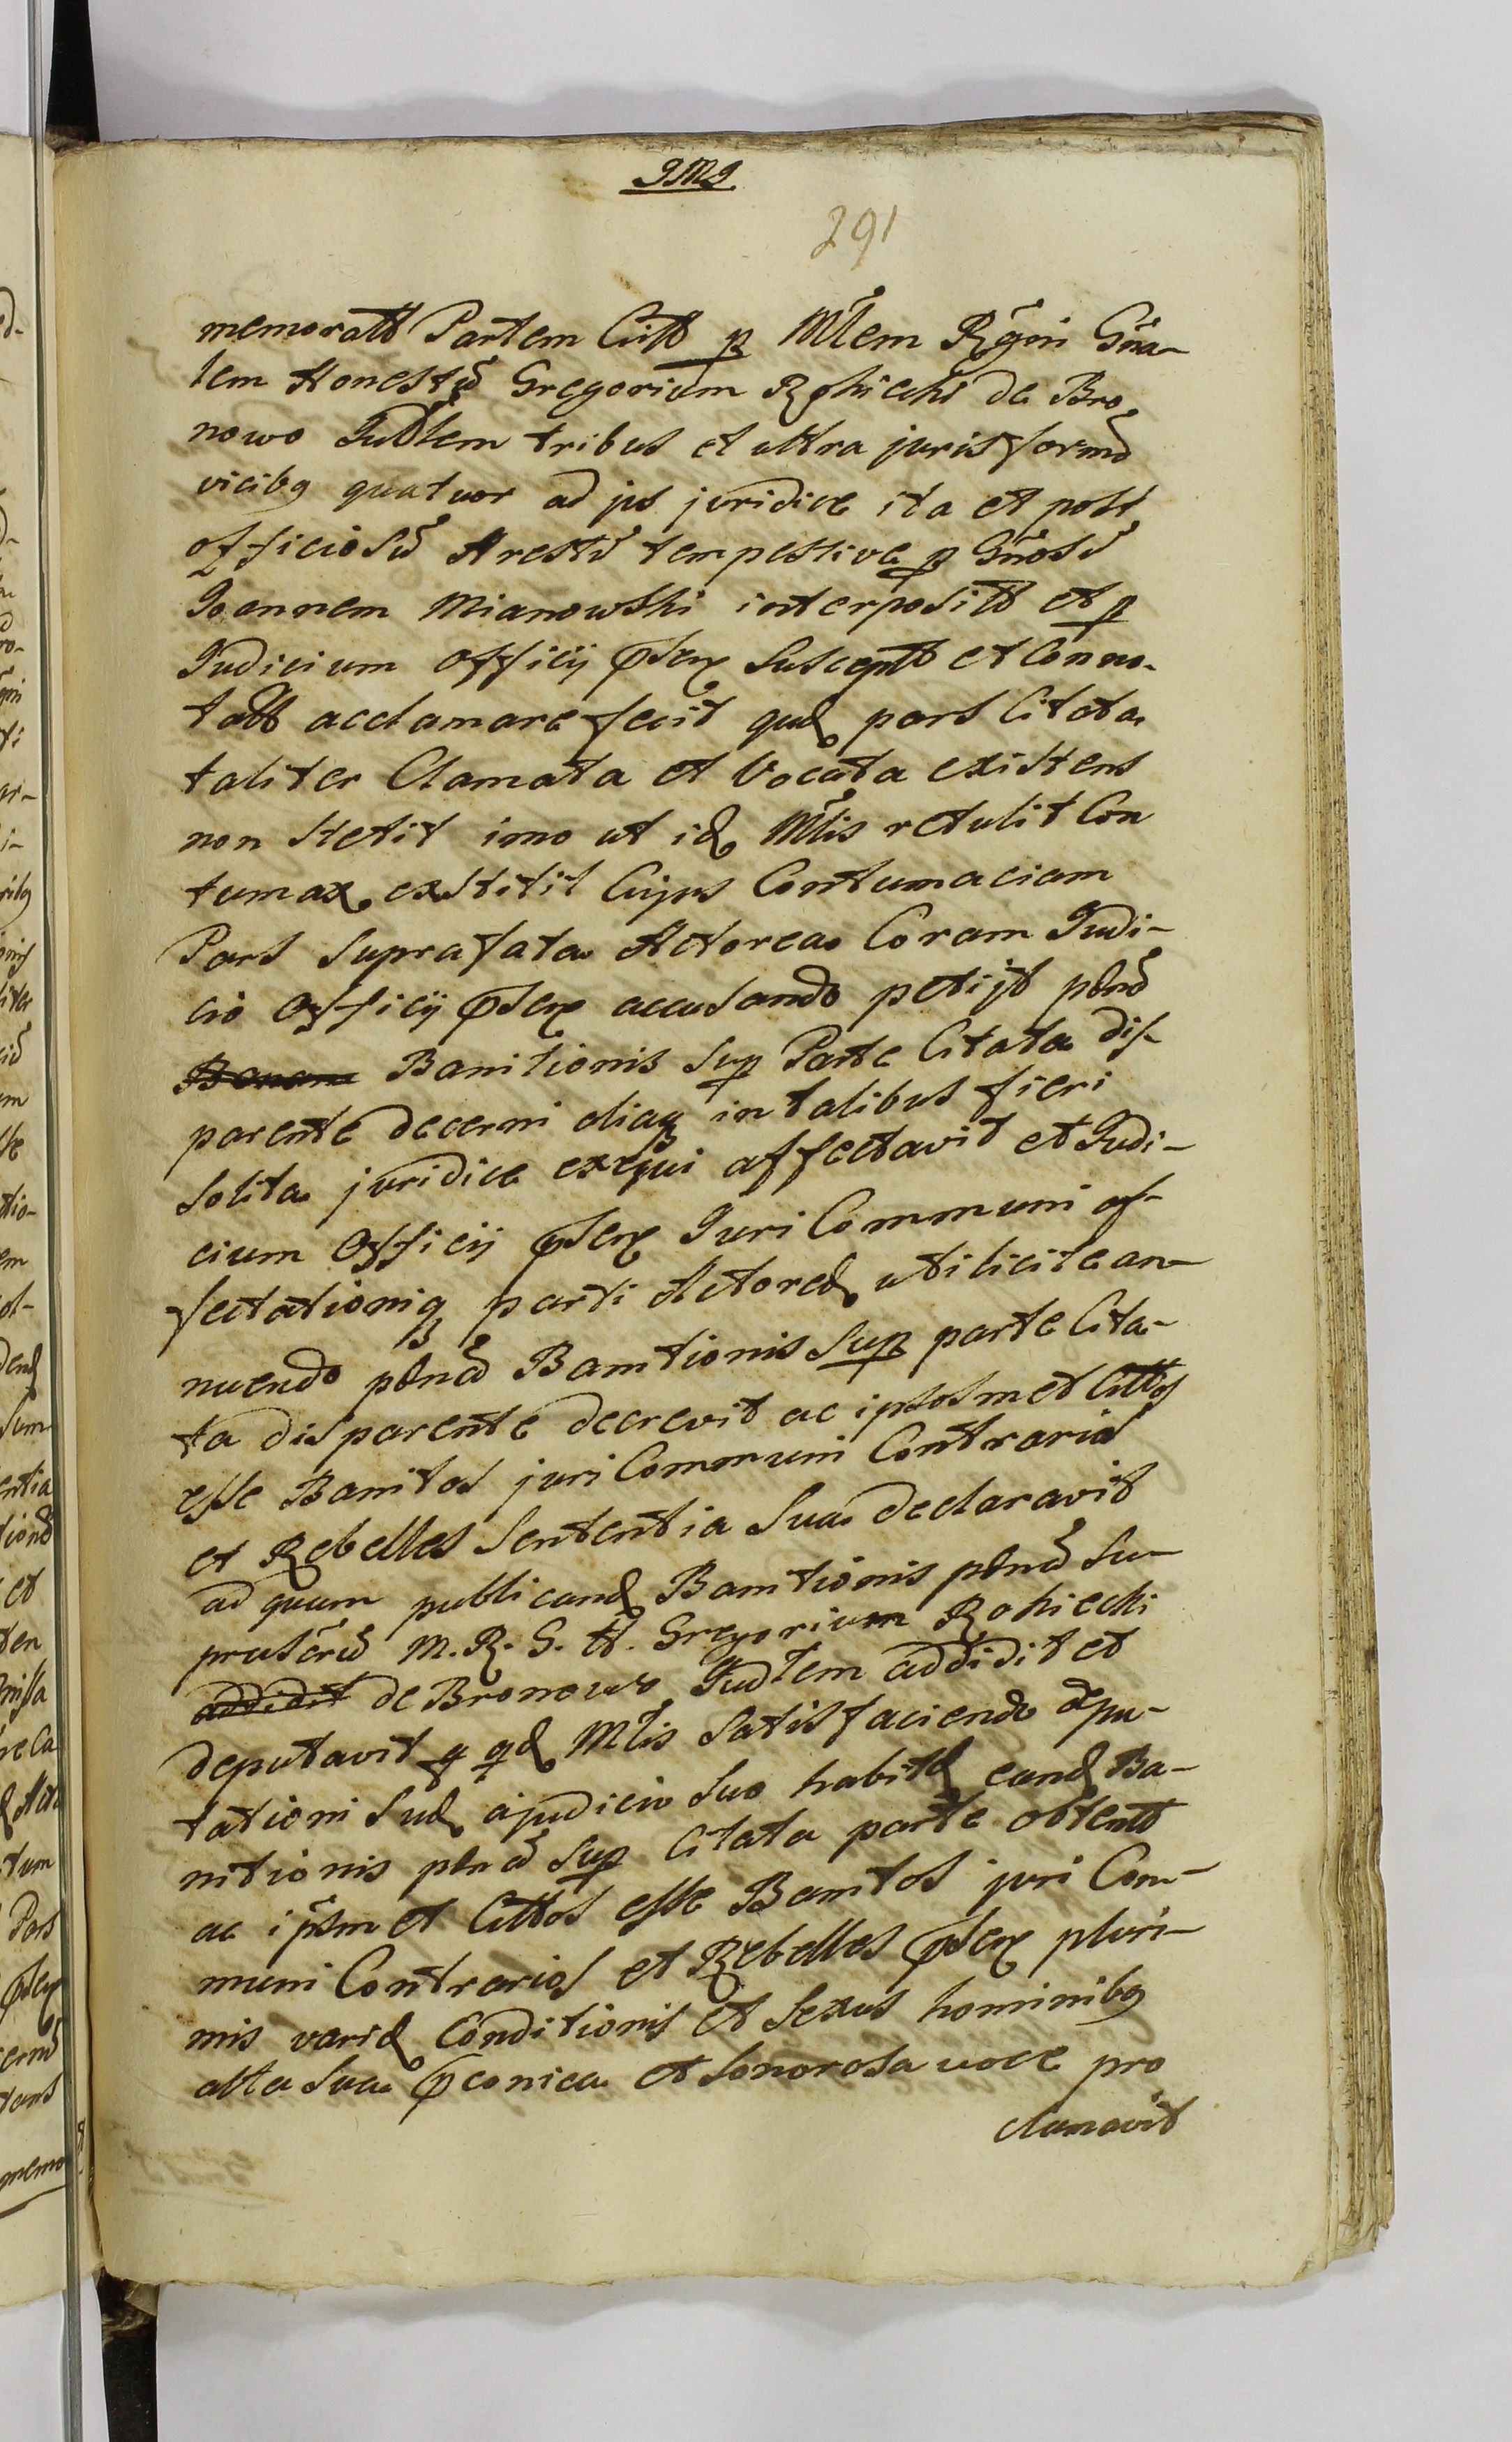 JMJ
291
memoratā Partem Cittā p Mtlem Rgni Gńa-
lem Honestū Gregorium Rohiecki de Bro-
nowo Judlem tribus et ultra juris formā
vicibq quatuor ad jus juridice ita et post
officiosū Arestū tempestive p Gńosū
Joannem Mianowski interpositū et p
Judicium officij pńsen Susceptū et Conno-
tatū acclamare fecit quę pars Citata
taliter Clamata et Vocata existens
non Stetit imo ut idę Mtlis retulit Con
tumax exstitit Cujus Contumaciam
Pars Suprafata Actorea Coram Judi-
cio Officij pńsen accusando petijt pānā
Banam Banitionis Sup Parte Citata dis-
parente decerni aliaq in talibus fieri
Solita juridice exequi affectavit et Judi-
cium Officij pńsen Juri Communi af-
fectationiq parti Actoreę uti licite an-
nuendo pānā Banitionis Sup parte Cita-
ta disparente decrevit ac ipsosmet Cittos
esse Banitos juri Communi Contrarios
et Rebelles Sententia Sua declaravit
ad quam publicandę Banitionis pānā Su-
prascrū M. R. G. H. Gregorium Rohiecki
addidit de Bronowo Judlem addidit et
deputavit q qdę Mtlis Satisfaciendo depu-
tationi Suę a judicio Suo habitę eandę Ba-
nitionis pānā Sup Citata parte obtentā
ac ipsmet Cittos esse Banitos juri Com-
muni Contrarios et Rebelles pńsen pluri-
mis varię Conditionis et Sexus hominibq
alta Sua pconica et Sonorosa voce pro
clamavit